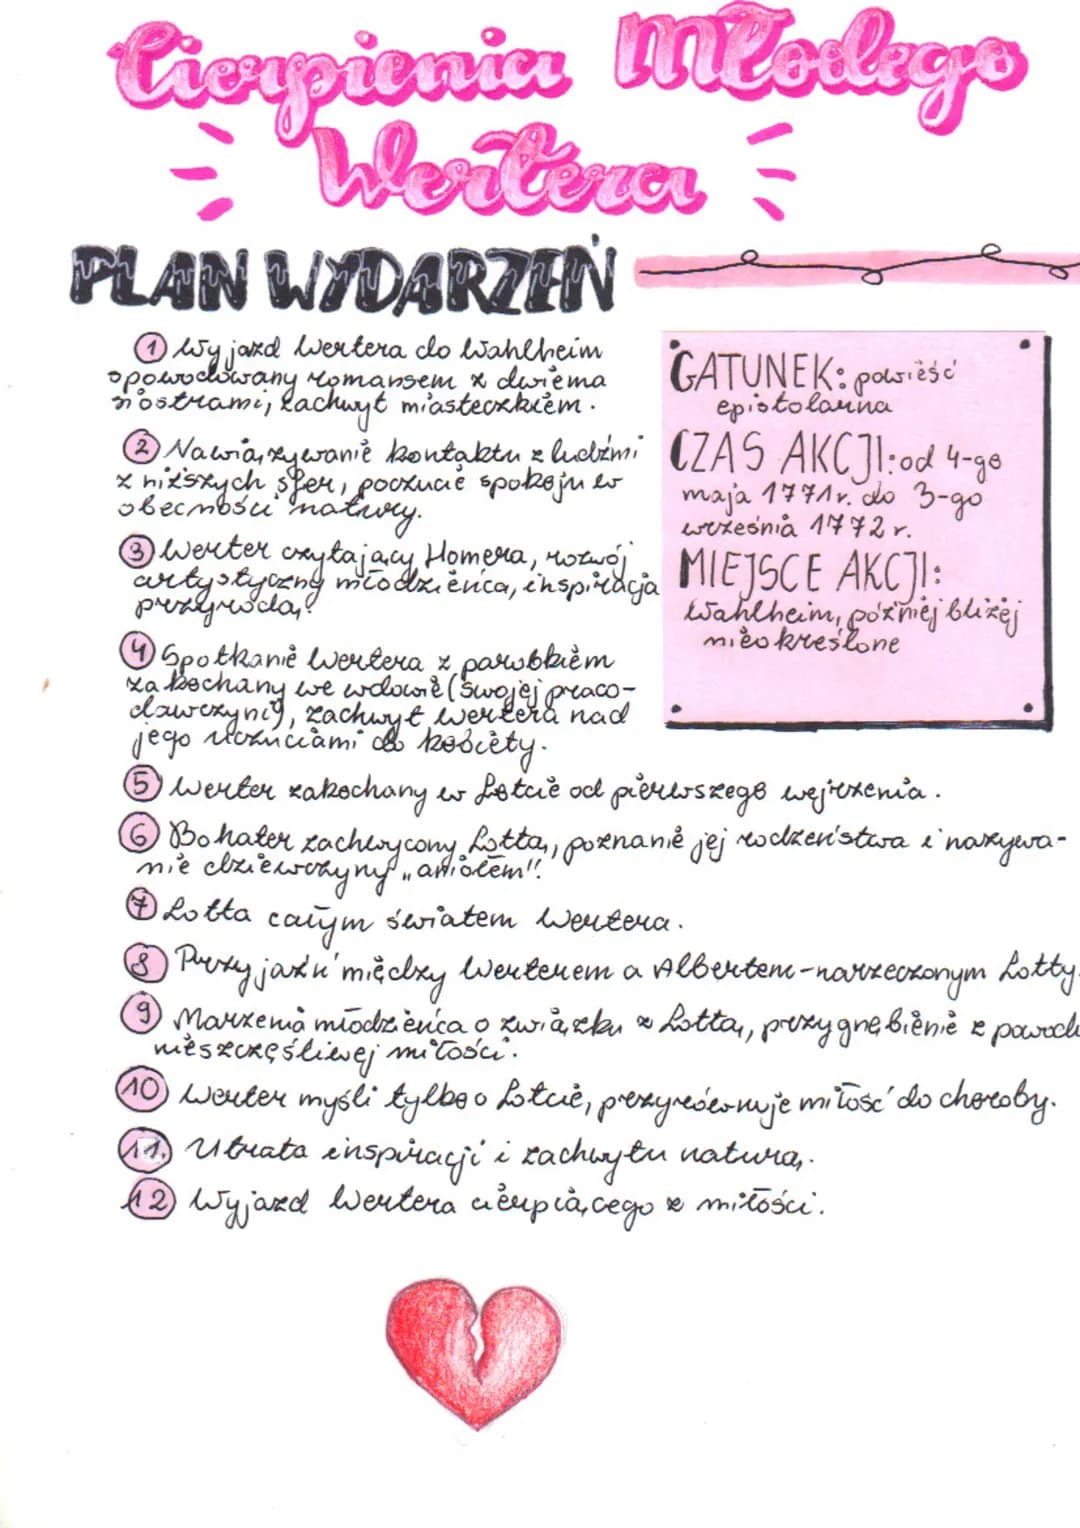 Cierpienia Młodego
Wertera
PLAN WYDARZEŃ
1 Wyjazd Wertera do Wahlheim
spowodowany romansem z dwiema
siostrami, zachwyt miasteczkiem.
2 Nawiązywanie kontaktu z ludźmi
z niższych sfer, poczucie spokoju w
obecności natury.
3 Werter czytający Homera, rozwój
artystyczny młodzieńca, inspiracja
przyrodą.
4 Spotkanie Wertera z parobkiem
zakochany we wdowie (swojej praco-
dawczyni), zachwyt Wertera nad
jego uczuciami do kobiety.
GATUNEK: powieść
epistolarna
CZAS AKCJI: od 4-go
maja 1771r. do 3-go
września 1772 r.
MIEJSCE AKCJI:
Wahlheim, później bliżej
nieokreślone
5 Werter zakochany w Lotcie od pierwszego wejrzenia.
6 Bohater zachwycony Lottą, poznanie jej rodzeństwa i nazywa-
nie dziewczyny „aniołem".
7 Lotta całym światem Wertera.
8 Przyjaźń między Werterem a Albertem-narzeczonym Lotty.
9 Marzenia młodzieńca o związku z Lottą, przygnębienie z powodu
nieszczęśliwej miłości.
10 Werter myśli tylko o Lotcie, przyrównuje miłość do choroby.
11. Utrata inspiracji i zachwytu naturą.
12 Wyjazd Wertera cierpiącego z miłości.